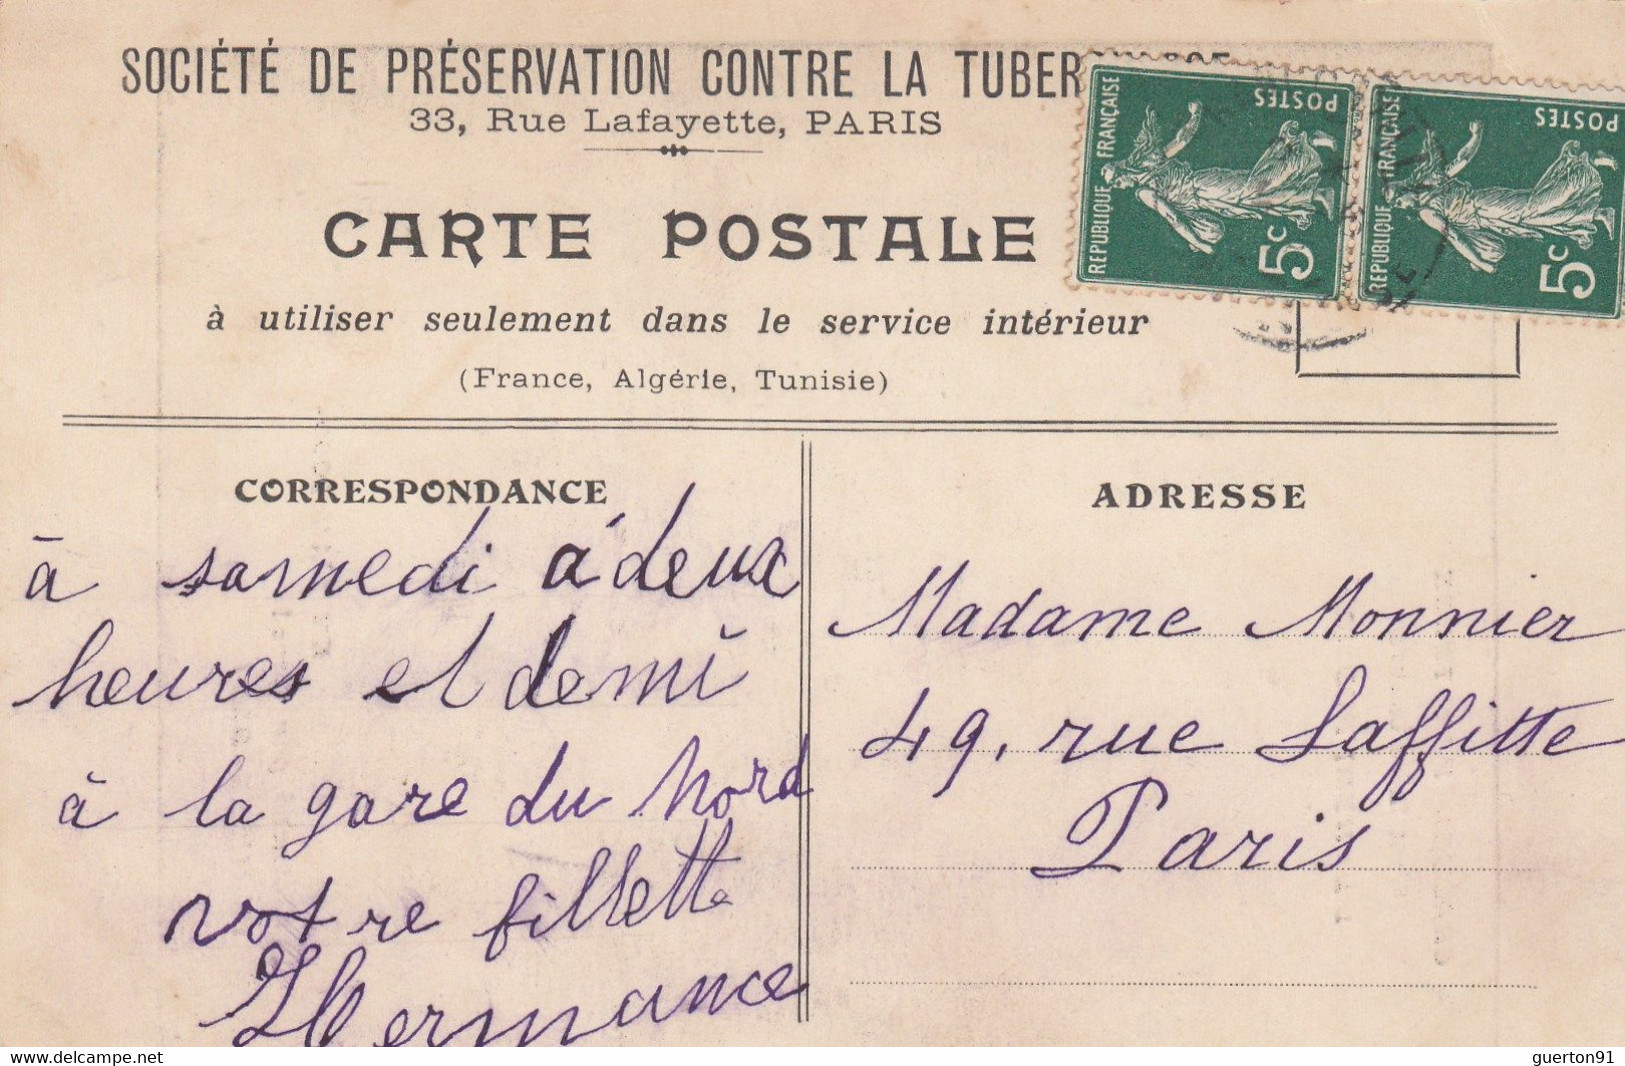 SOCIÉTÉ DE PRÉSERVATION CONTRE LA TUBER
33, Rue Lafayette, PARIS
CARTE POSTALE
à utiliser seulement dans le service intérieur
(France, Algérie, Tunisie)
RÉPUBLIQUE FRANÇAISE
POSTES
5c
RÉPUBLIQUE FRANÇAISE
POSTES
5c
CORRESPONDANCE
à samedi à deux
heures et demi
à la gare du Nord
votre fillette
Hermance
ADRESSE
Madame Monnier
49, rue Laffitte
Paris
delcampe.net
guerton91